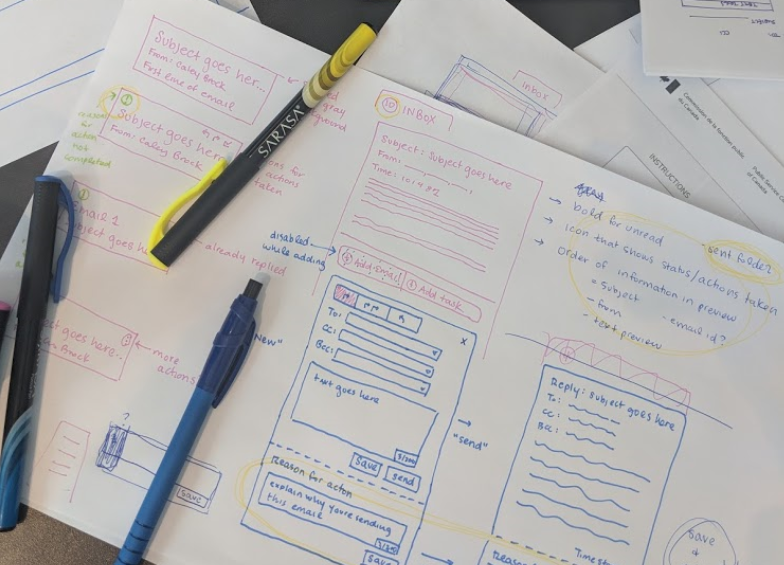 Subject goes her...
From: Caley Brock
First line of email
Subject goes here
From: Caley Brock
reason
for
action
not
completed
for
actions
taken
Email 2
Subject goes h
already replied
goes here...
Brock
more
actions?
?
save
SARASA
INBOX
Subject: Subject goes here
From:
Time:
disabled
while adding
Add email
Add task...
"New"
x
To:
CC:
Bcc:
text goes here
save
send
Reason for acton
explain why you're sending
this email
save
"send"
Inbox
bold for unread
icon that shows status/actions taken
Order of information in preview
- Subject
- from
- text preview
- email id?
sent folder
Reply: Subject goes here
To:
CC:
Bcc:
Reason
save
INSTRUCTIONS
Commission de la fonction publique
du Canada
Public Service
of Canada